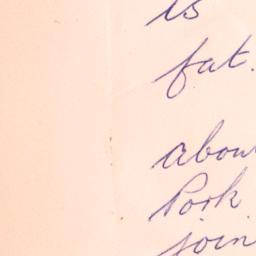 is
fat.
about
Pork
join